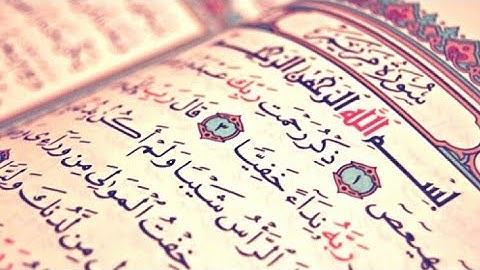 سُورَةُ مَرْيَمَ
بِسْمِ اللَّهِ الرَّحْمَٰنِ الرَّحِيمِ
كهيعص ١ ذِكْرُ رَحْمَتِ رَبِّكَ
رَبَّهُ نِدَآءً خَفِيًّا ٣ قَالَ رَبِّ
الرَّأْسُ شَيْبًا وَلَمْ أَكُنۢ
خِفْتُ الْمَوَٰلِيَ مِن وَرَآءِى
مِن لَّدُنكَ وَلِيًّا